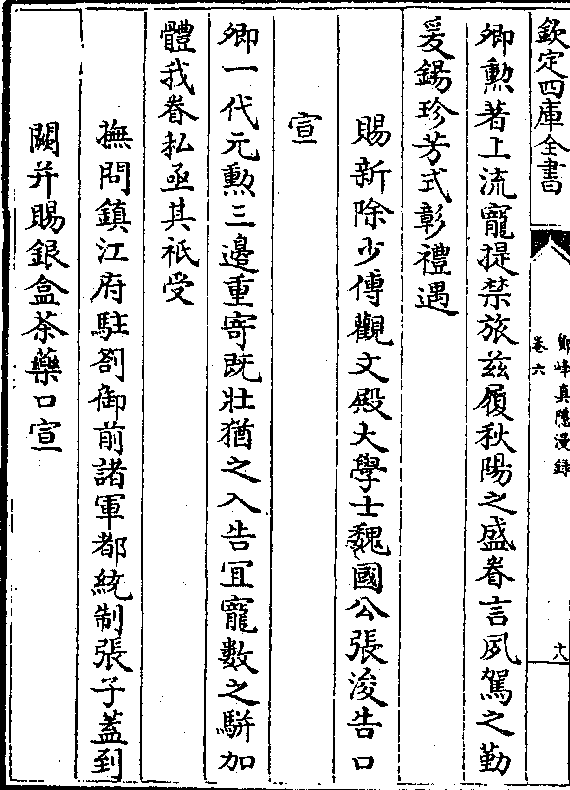 欽定四庫全書
鄮峰真隱漫錄
卷六
卿勲著上流寵提禁旅兹履秋陽之盛眷言夙駕之勤
爰錫珍芳式彰禮遇
賜新除少傅觀文殿大學士魏國公張浚告口
宣
卿一代元勲三邉重寄既壯猶之入告宜寵數之駢加
體我眷㳟亟其祗受
撫問鎮江府駐劄御前諸軍都統制張子葢到
闕并賜銀盒茶藥口宣